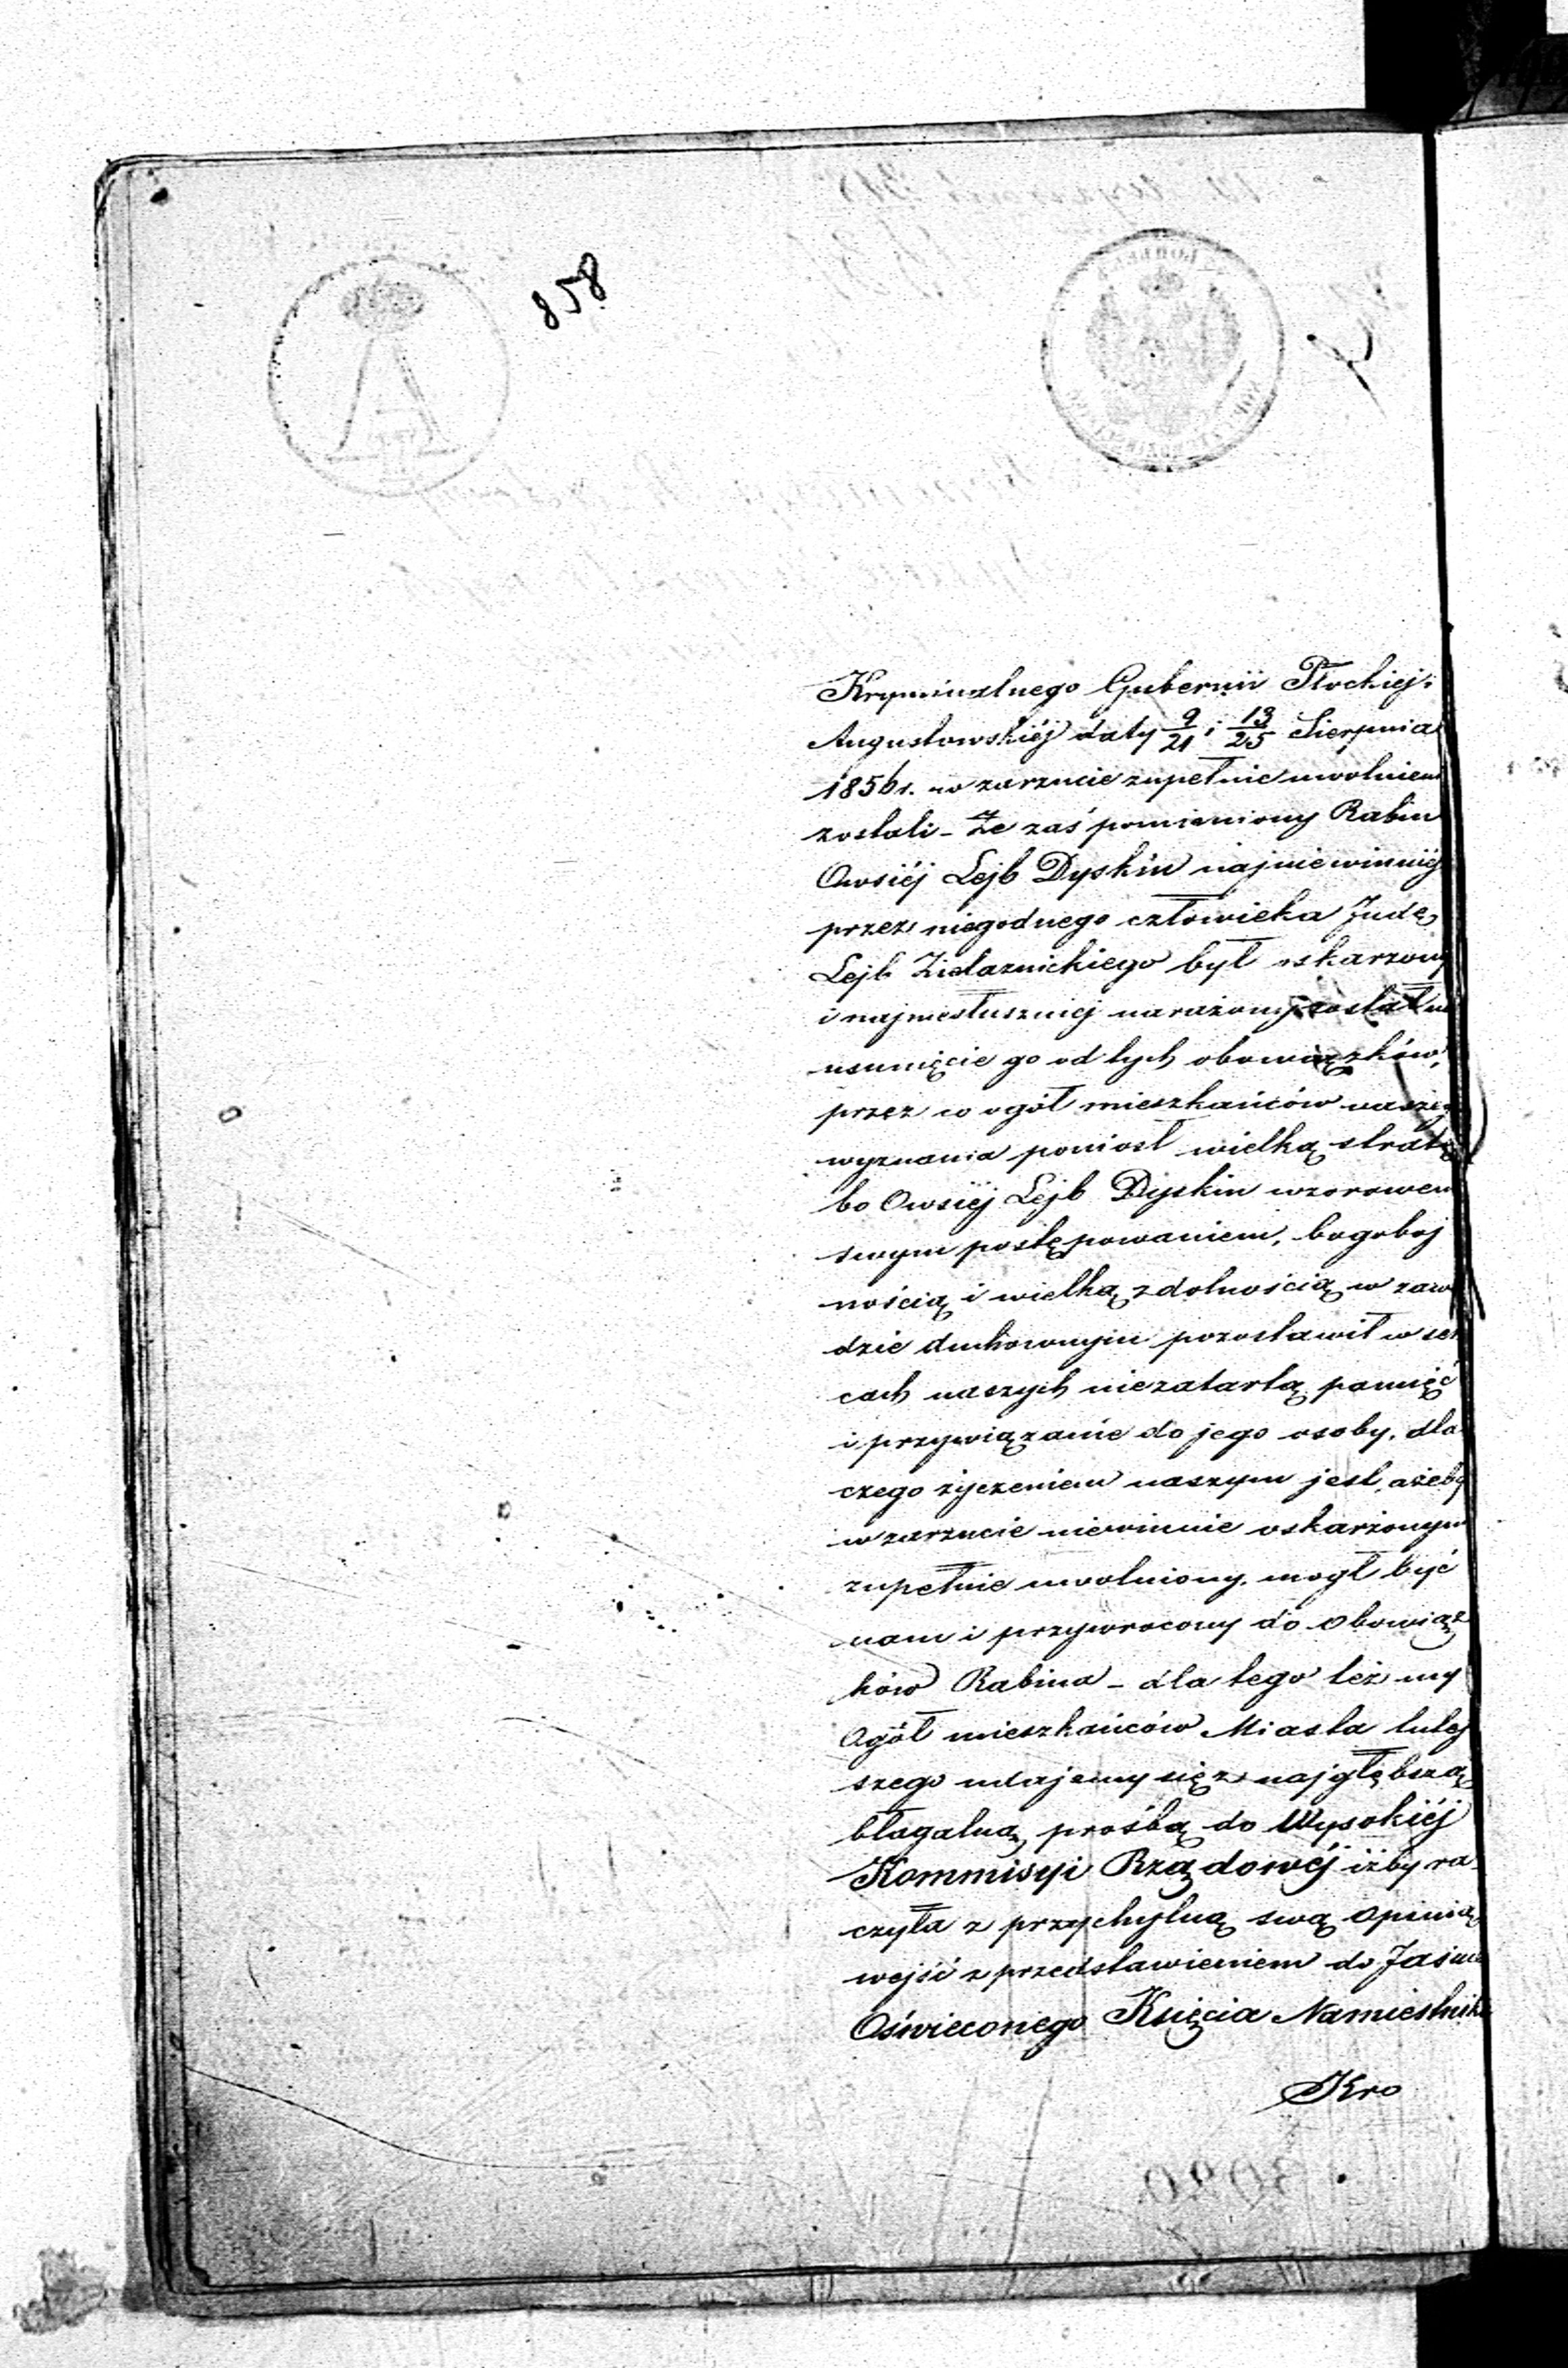 858
Kryminalnego Gubernii Płockiej i
Augustowskiéj daty 9/21 i 13/25 Sierpnia
1856 r. w zarzucie zupełnie uwolnieni
zostali - Że zaś pomieniony Rabin
Owsiéj Lejb Dyskin najniewinniéj
przez niegodnego człowieka Judę
Lejb Zielaznickiego był oskarzony
i najniesłuszniej narażony został na
usunięcie go od tych obowiązków,
przez co ogół mieszkańców naszego
wyznania poniosł wielką stratę
bo Owsiéj Lejb Dyskin wzorowem
swym postępowaniem, bogoboj
nością i wielką zdolnością w zawo
dzie duchownym pozostawił w ser
cach naszych niezatartą pamięć
i przywiązanie do jego osoby. dla
czego życzeniem naszym jest, ażeby
w zarzucie niewinnie oskarżonym
zupełnie uwolniony. mogł być
nam i przywrocony do obowiąz
ków Rabina - dla tego też my
Ogół mieszkańców Miasta tutej
szego udajemy się z najgłębszą
błagalną prośbą do Wysokiéj
Kommisyi Rządowéj iżby ra-
czyła z przychylną swą opinią
wejść z przedstawieniem do Jaśnie
Oświeconego Księcia Namiestnika
Kro